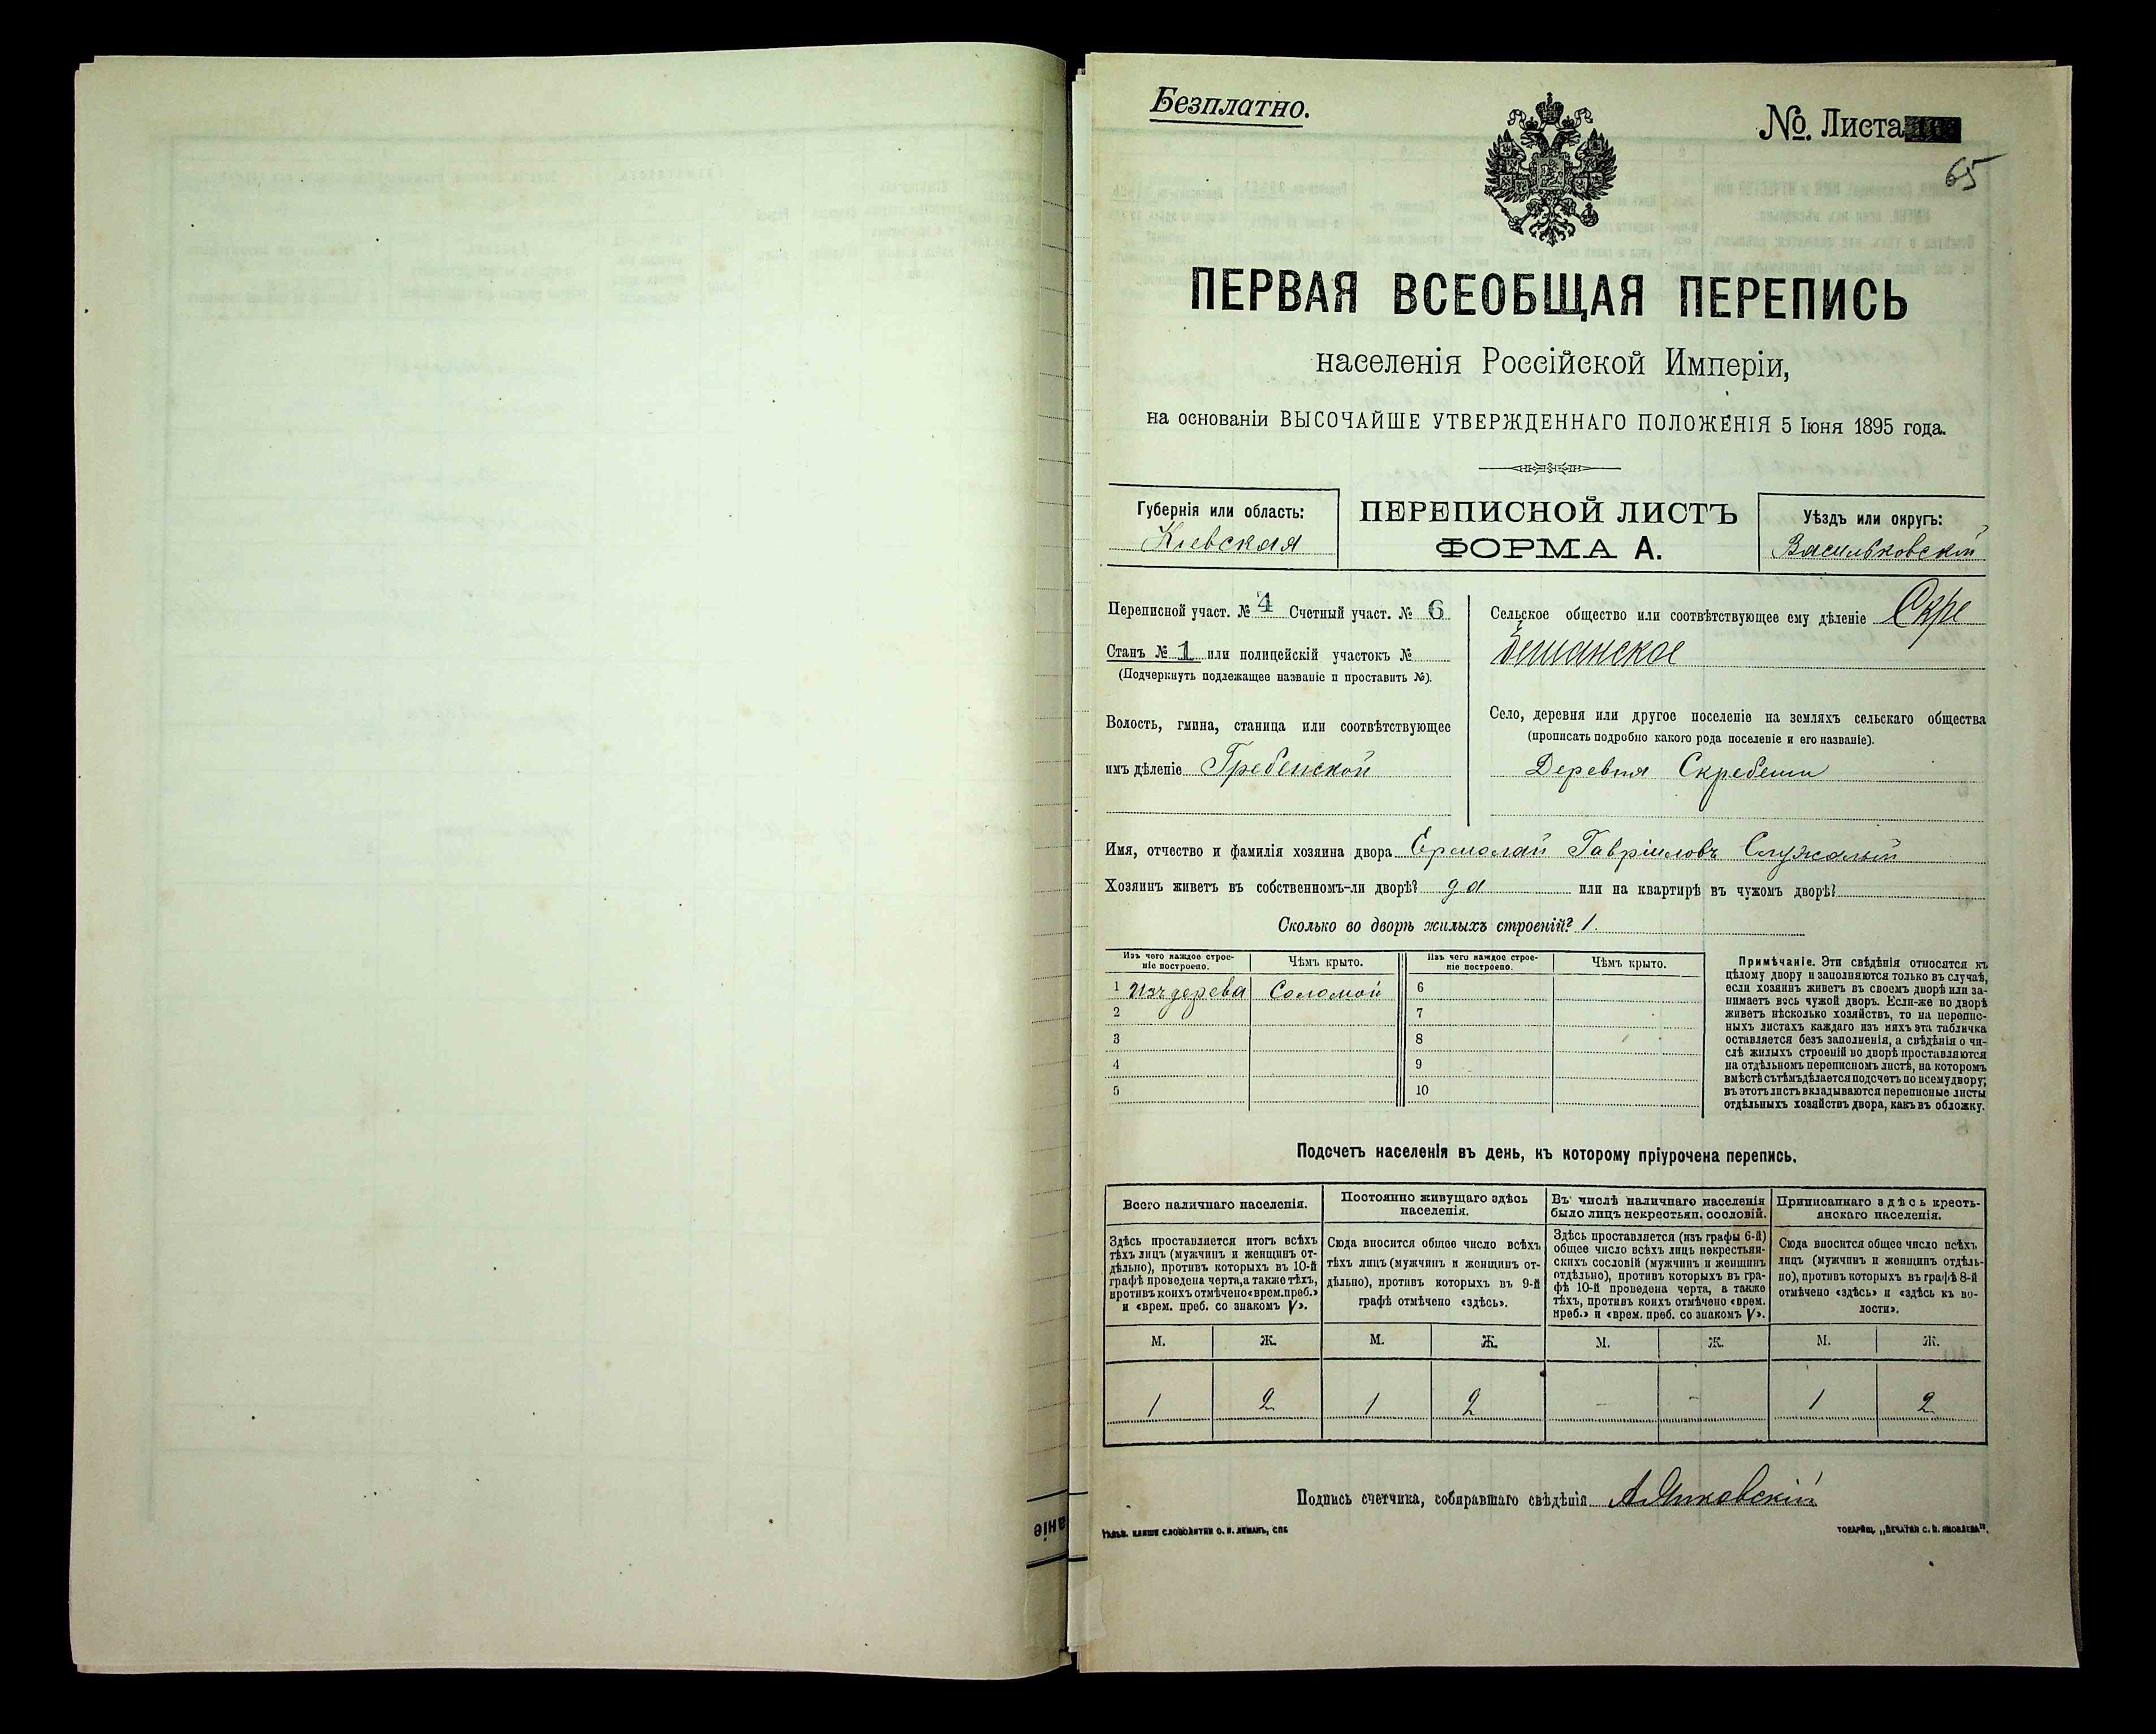 Безплатно.
№. Листа
65
ПЕРВАЯ ВСЕОБЩАЯ ПЕРЕПИСЬ
населенія Россійской Имперіи,
на основаніи ВЫСОЧАЙШЕ УТВЕРЖДЕННАГО ПОЛОЖЕНІЯ 5 Іюня 1895 года.
Губернія или область:
Кіевская
ПЕРЕПИСНОЙ ЛИСТЪ
ФОРМА А.
Уѣздъ или округъ:
Васильковскій
Переписной участ. № 4 Счетный участ. № 6
Станъ № 1 или полицейскій участокъ №
(Подчеркнуть подлежащее названіе и проставить №).
Волость, гмина, станица или соотвѣтствующее
имъ дѣленіе Гребенской
Сельское общество или соотвѣтствующее ему дѣленіе Скре
бешанское
Село, деревня или другое поселеніе на земляхъ сельскаго общества
(прописать подробно какого рода поселеніе и его названіе).
Деревня Скребеши
Имя, отчество и фамилія хозяина двора Ермолай Гавріиловъ Служалый
Хозяинъ живетъ въ собственномъ-ли дворѣ? да или на квартирѣ въ чужомъ дворѣ?
Сколько во дворѣ жилыхъ строеній? 1.
Изъ чего каждое строе-
ніе построено.
Чѣмъ крыто.
Изъ чего каждое строе-
ніе построено.
Чѣмъ крыто.
1 Изъ дерева Соломой 6
2 7
3 8
4 9
5 10
Примѣчаніе. Эти свѣдѣнія относятся къ
цѣлому двору и заполняются только въ случаѣ,
если хозяинъ живетъ въ своемъ дворѣ или за-
нимаетъ весь чужой дворъ. Если-же во дворѣ
живетъ нѣсколько хозяйствъ, то на перепис-
ныхъ листахъ каждаго изъ нихъ эта табличка
оставляется безъ заполненія, а свѣдѣнія о чи-
слѣ жилыхъ строеній во дворѣ проставляются
на отдѣльномъ переписномъ листѣ, на которомъ
вмѣстѣ съ тѣмъ дѣлается подсчетъ по всему двору;
въ этотъ листъ вкладываются переписные листы
отдѣльныхъ хозяйствъ двора, какъ въ обложку.
Подсчетъ населенія въ день, къ которому пріурочена перепись.
Всего наличнаго населенія.
Здѣсь проставляется итогъ всѣхъ
тѣхъ лицъ (мужчинъ и женщинъ от-
дѣльно), противъ которыхъ въ 10-й
графѣ проведена черта, а также тѣхъ,
противъ коихъ отмѣчено «врем. преб.»
и «врем. преб. со знакомъ V».
Постоянно живущаго здѣсь
населенія.
Сюда вносится общее число всѣхъ
тѣхъ лицъ (мужчинъ и женщинъ от-
дѣльно), противъ которыхъ въ 9-й
графѣ отмѣчено «здѣсь».
Въ числѣ наличнаго населенія
было лицъ некрестьян. сословій.
Здѣсь проставляется (изъ графы 6-й)
общее число всѣхъ лицъ некрестьян-
скихъ сословій (мужчинъ и женщинъ
отдѣльно), противъ которыхъ въ гра-
фѣ 10-й проведена черта, а также
тѣхъ, противъ коихъ отмѣчено «врем.
преб.» и «врем. преб. со знакомъ V».
Приписаннаго здѣсь кресть-
янскаго населенія.
Сюда вносится общее число всѣхъ
лицъ (мужчинъ и женщинъ отдѣль-
но), противъ которыхъ въ графѣ 8-й
отмѣчено «здѣсь» и «здѣсь къ во-
лости».
М. Ж. М. Ж. М. Ж. М. Ж.
1 2 1 2 - - 1 2
Подпись счетчика, собиравшаго свѣдѣнія
аніе
Гальв. клише словолитни О. И. Леманъ, СПБ
Товарищ. „Печатня С. П. Яковлева“.